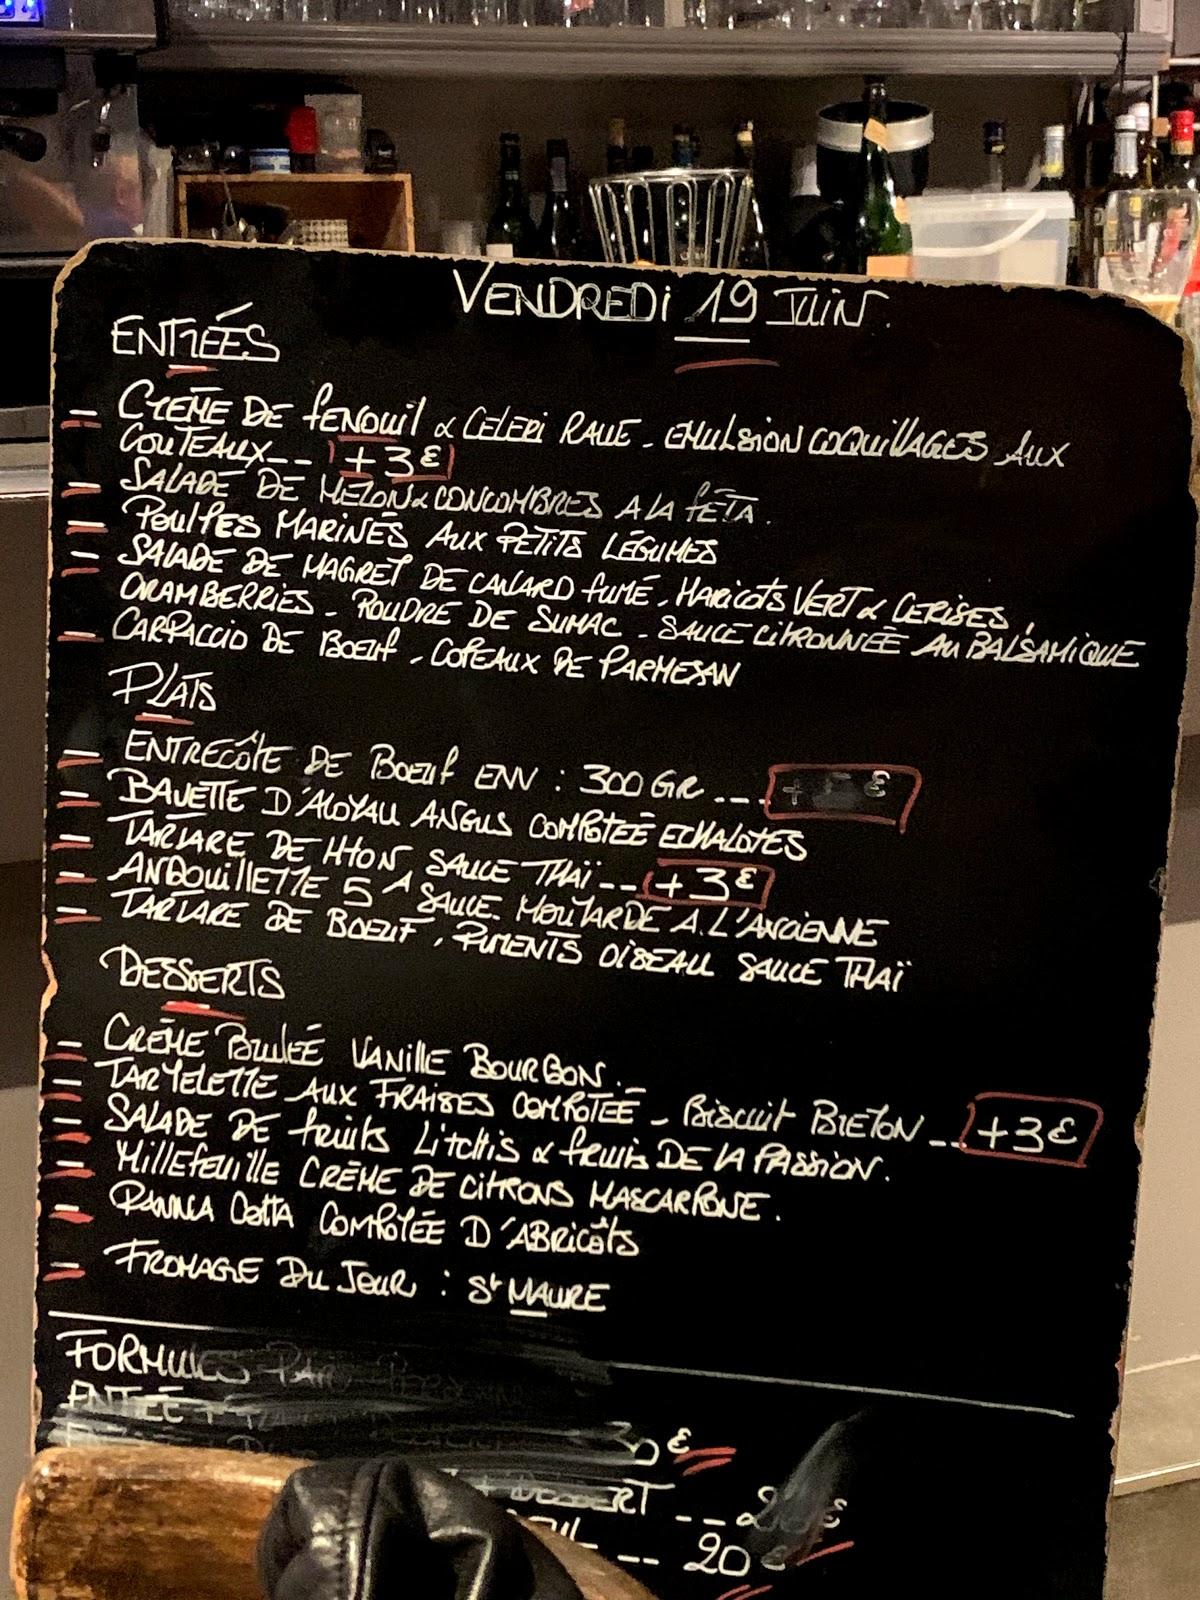 VENDREDI 19 JUIN.
ENTRÉES
- CRÈME DE fENOUIL & CELERI RAVE - EMULSION COQUILLAGES AUX
COUTEAUX -- +3€
- SALADE DE MELON & CONCOMBRES A LA fÉTA.
- POULPES MARINÉS AUX PETITS LÉGUMES
- SALADE DE MAGRET DE CANARD fUMÉ, HARICOTS VERT & CERISES,
CRAMBERRIES - POUDRE DE SUMAC - SAUCE CITRONNÉE AU BALSAMIQUE
- CARPACCIO DE BOEUf, COPEAUX DE PARMESAN
PLATS
- ENTRECÔTE DE BOEUf ENV : 300 GR ---- + €
- BAVETTE D'ALOYAU ANGUS COMPOTÉE ECHALOTES
- TARTARE DE THON SAUCE THAÏ -- +3€
- ANDOUILLETTE 5 A SAUCE MOUTARDE A L'ANCIENNE
- TARTARE DE BOEUF, PIMENTS OISEAU SAUCE THAÏ
DESSERTS
- CRÈME BRULÉE VANILLE BOURBON.-
- TARTELETTE AUX FRAISES COMPOTÉE - BISCUIT BRETON --- +3€
- SALADE DE fruits LITCHIS & fruits DE LA PASSION.
- MILLEFEUILLE CRÈME DE CITRONS MASCARPONE.
- PANNA COTTA COMPOTÉE D'ABRICÔTS
- FROMAGE DU JOUR : St MAURE
FORMULES
ENTRÉE +
€
DESSERT -- €
-- 20€